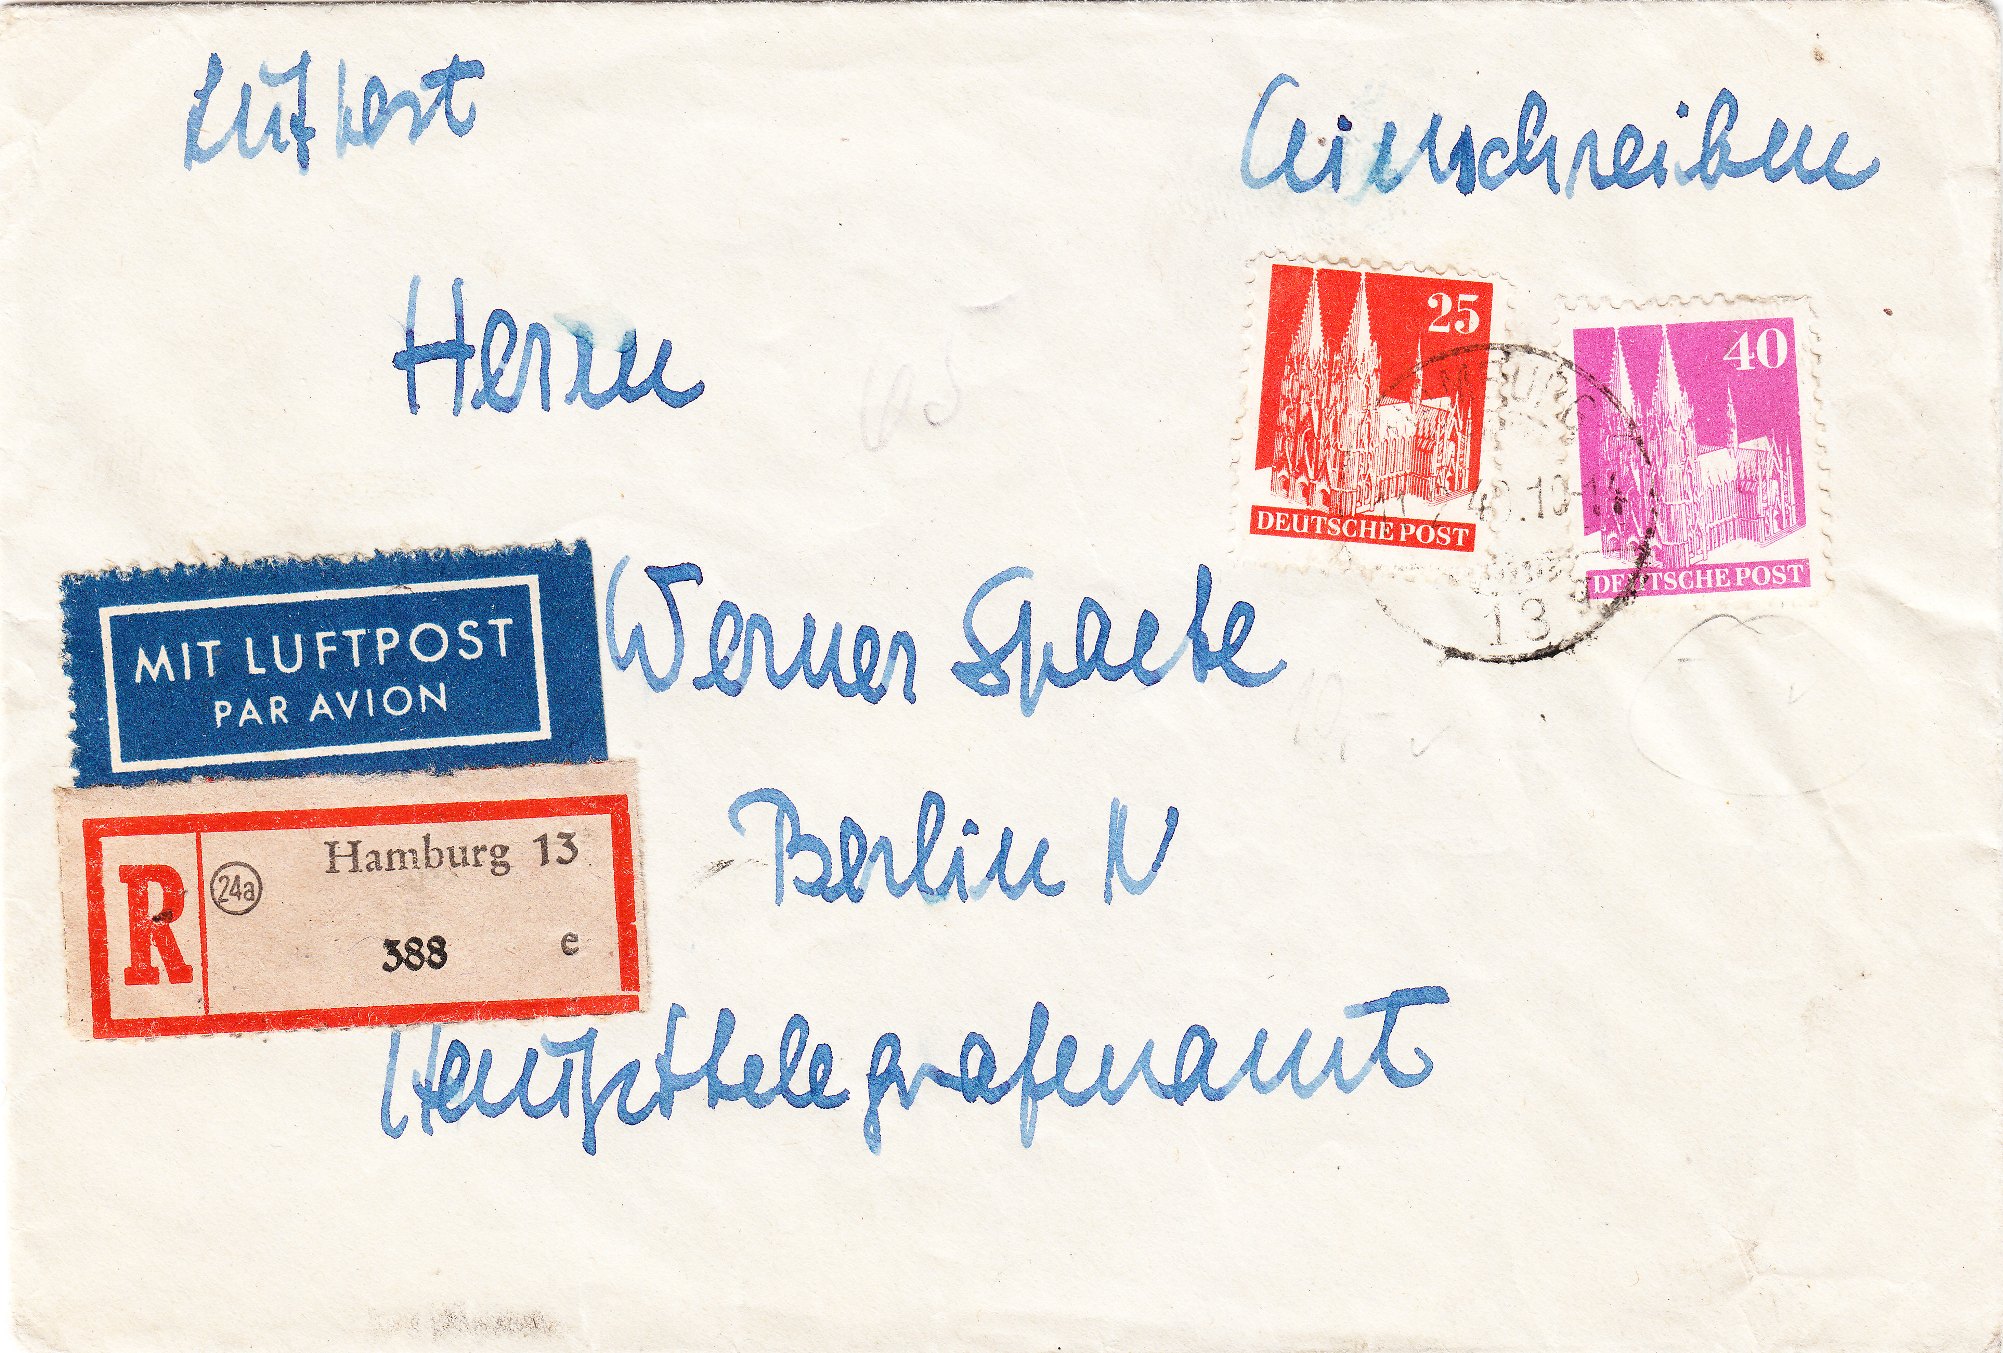 Luftpost
Einschreiben
Herrn
25
DEUTSCHE POST
40
DEUTSCHE POST
MIT LUFTPOST
PAR AVION
Werner Spaete
13
Berlin N
R
24a
Hamburg 13
388
e
Haupttelegrafenamt